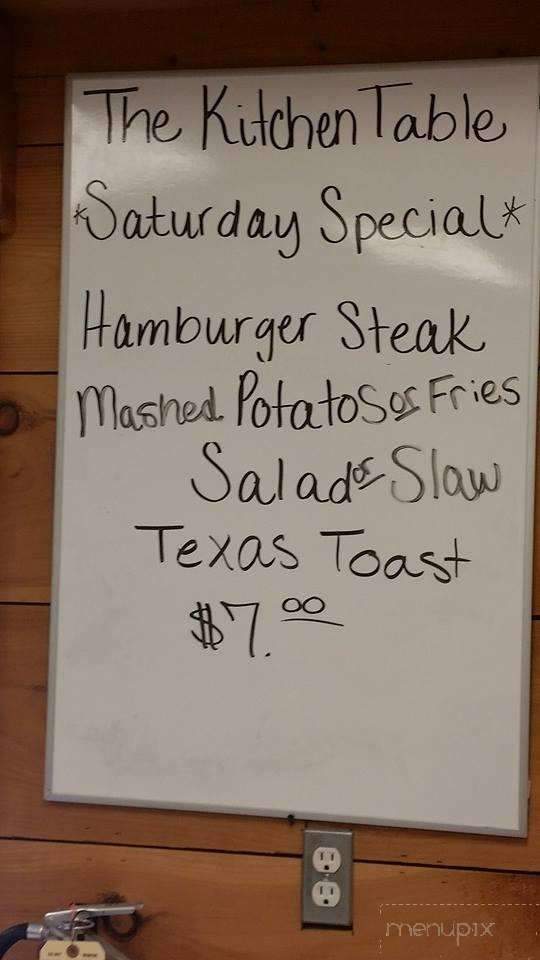 The Kitchen Table
*Saturday Special*
Hamburger Steak
Mashed Potatos or Fries
Salad or Slaw
Texas Toast
$7.00
menupix